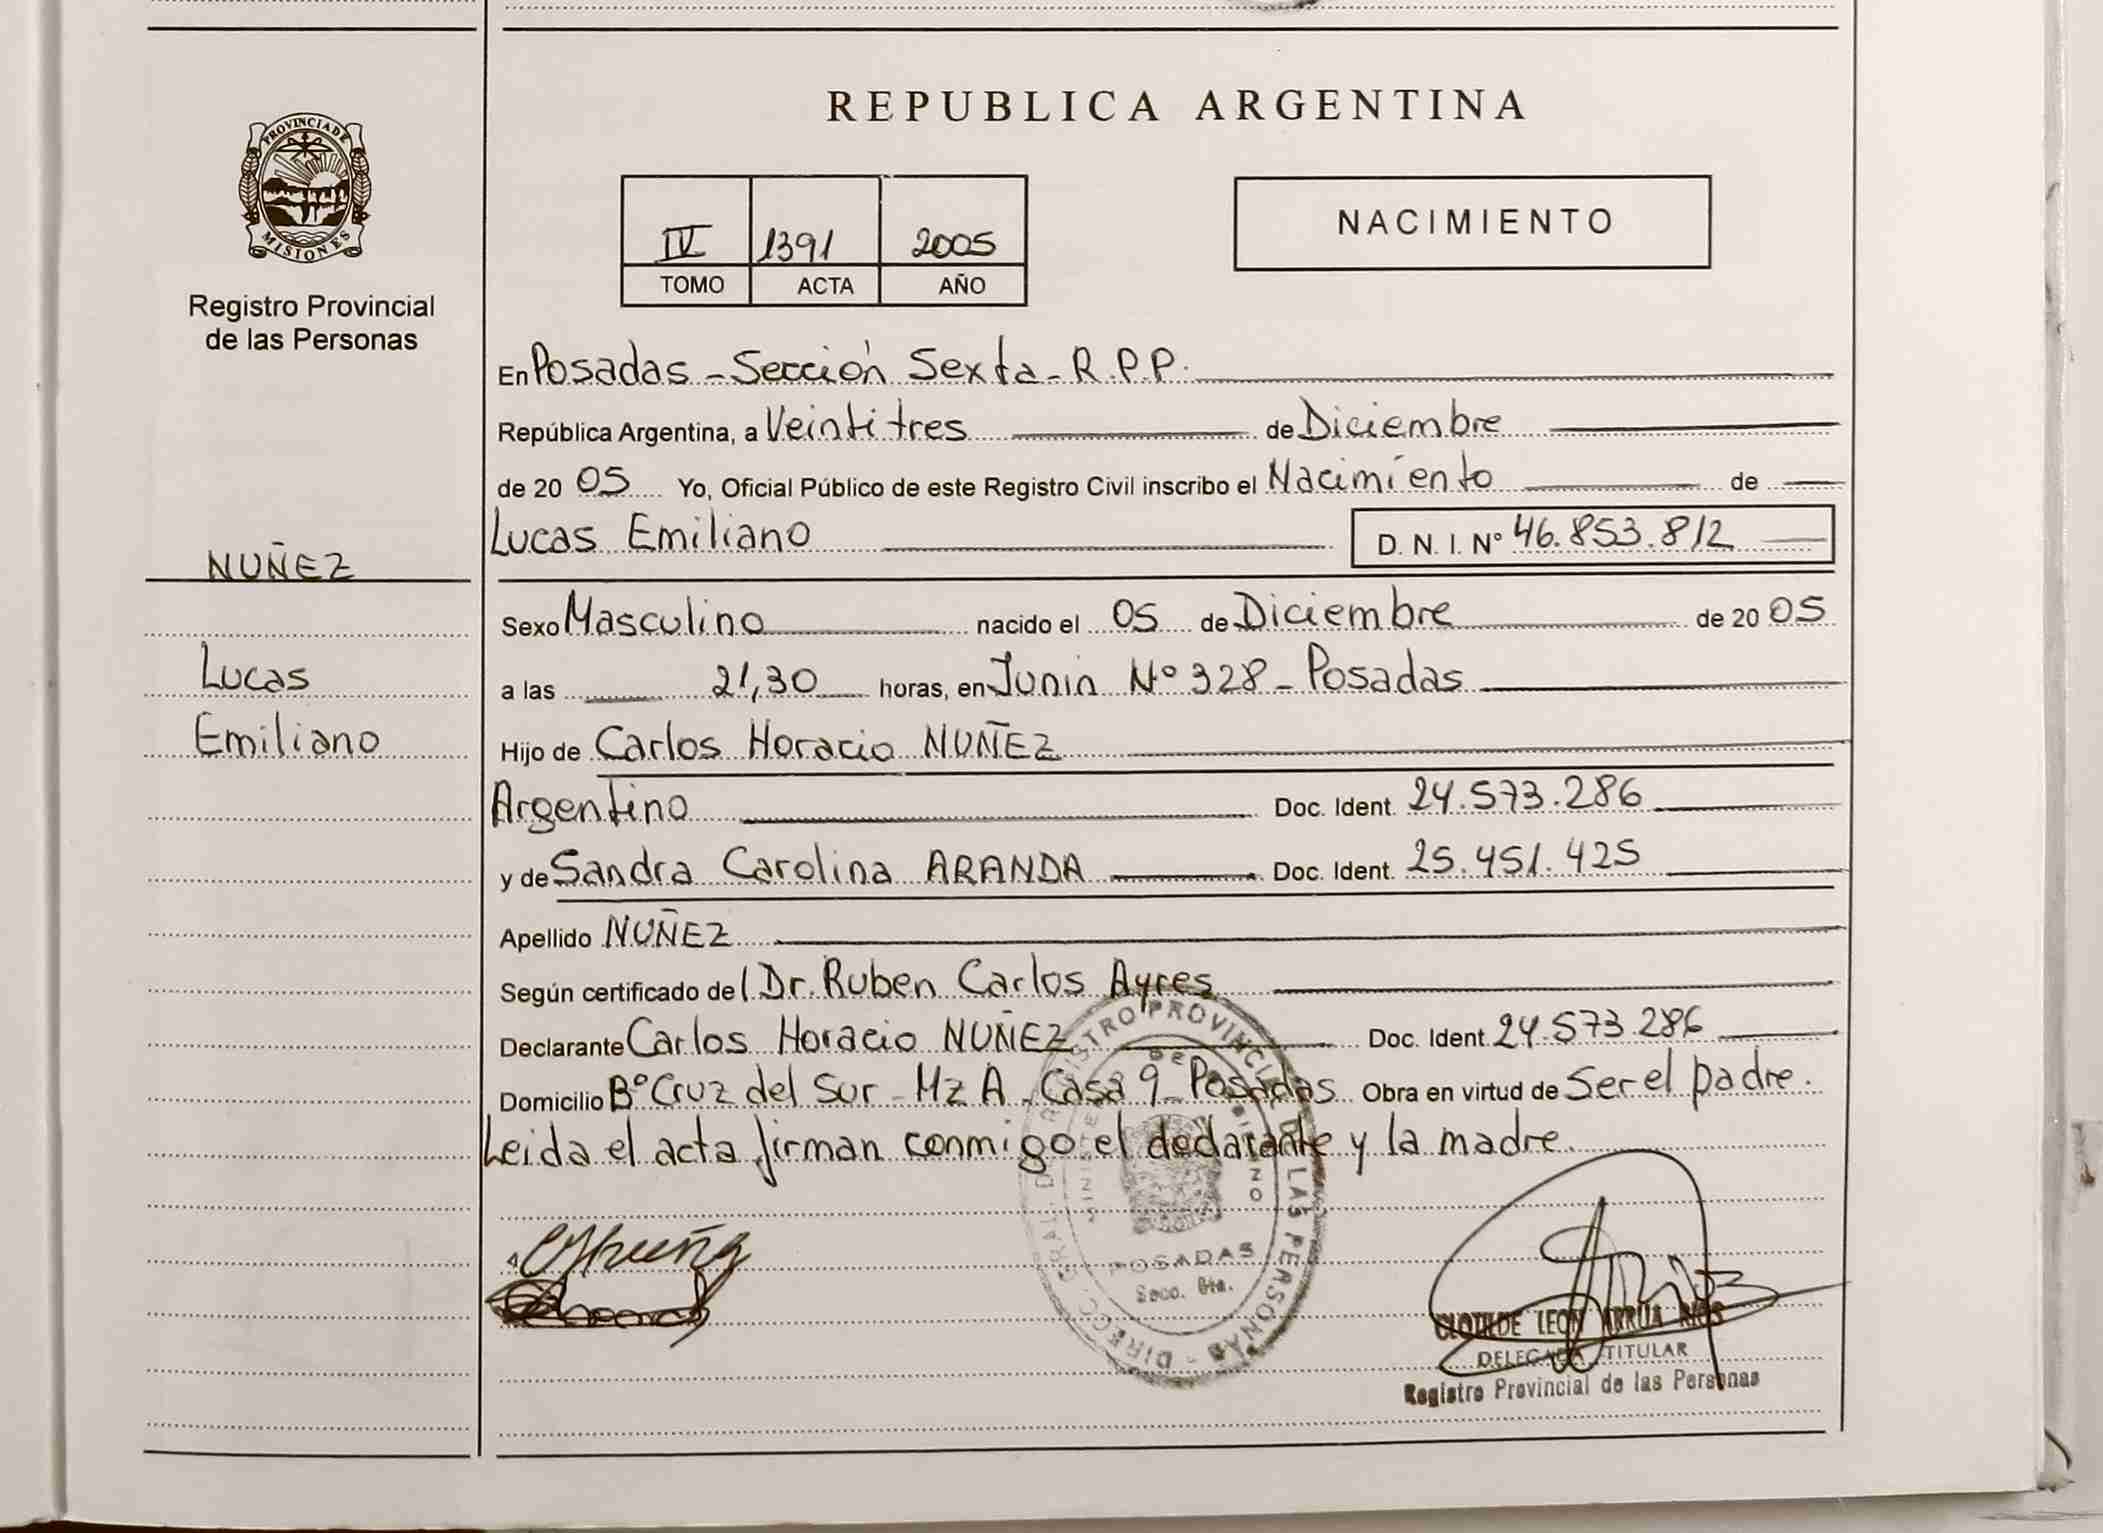 PROVINCIA DE
MISIONES
Registro Provincial
de las Personas
NUÑEZ
Lucas
Emiliano
REPUBLICA ARGENTINA
IV 1391 2005
TOMO ACTA AÑO
NACIMIENTO
En Posadas - Sección Sexta - R.P.P.
República Argentina, a Veintitres de Diciembre
de 20 05 Yo, Oficial Público de este Registro Civil inscribo el Nacimiento de
Lucas Emiliano D. N. I. Nº 46.853.812
Sexo Masculino nacido el 05 de Diciembre de 20 05
a las 21,30 horas, en Junin Nº 328 - Posadas
Hijo de Carlos Horacio NUÑEZ
Argentino Doc. Ident. 24.573.286
y de Sandra Carolina ARANDA Doc. Ident. 25.451.425
Apellido NUÑEZ
Según certificado del Dr. Ruben Carlos Ayres
Declarante Carlos Horacio NUÑEZ Doc. Ident. 24.573.286
Domicilio Bº Cruz del Sur - Mz A - Casa 9 - Posadas Obra en virtud de Ser el padre.
Leida el acta firman conmigo el declarante y la madre.
DIRECC. GRAL. DEL REGISTRO PROVINCIAL DE LAS PERSONAS
MINISTERIO DE GOBIERNO
POSADAS
Secc. 6ta.
CLOTILDE LEON ARRUA RIOS
DELEGADA TITULAR
Registro Provincial de las Personas